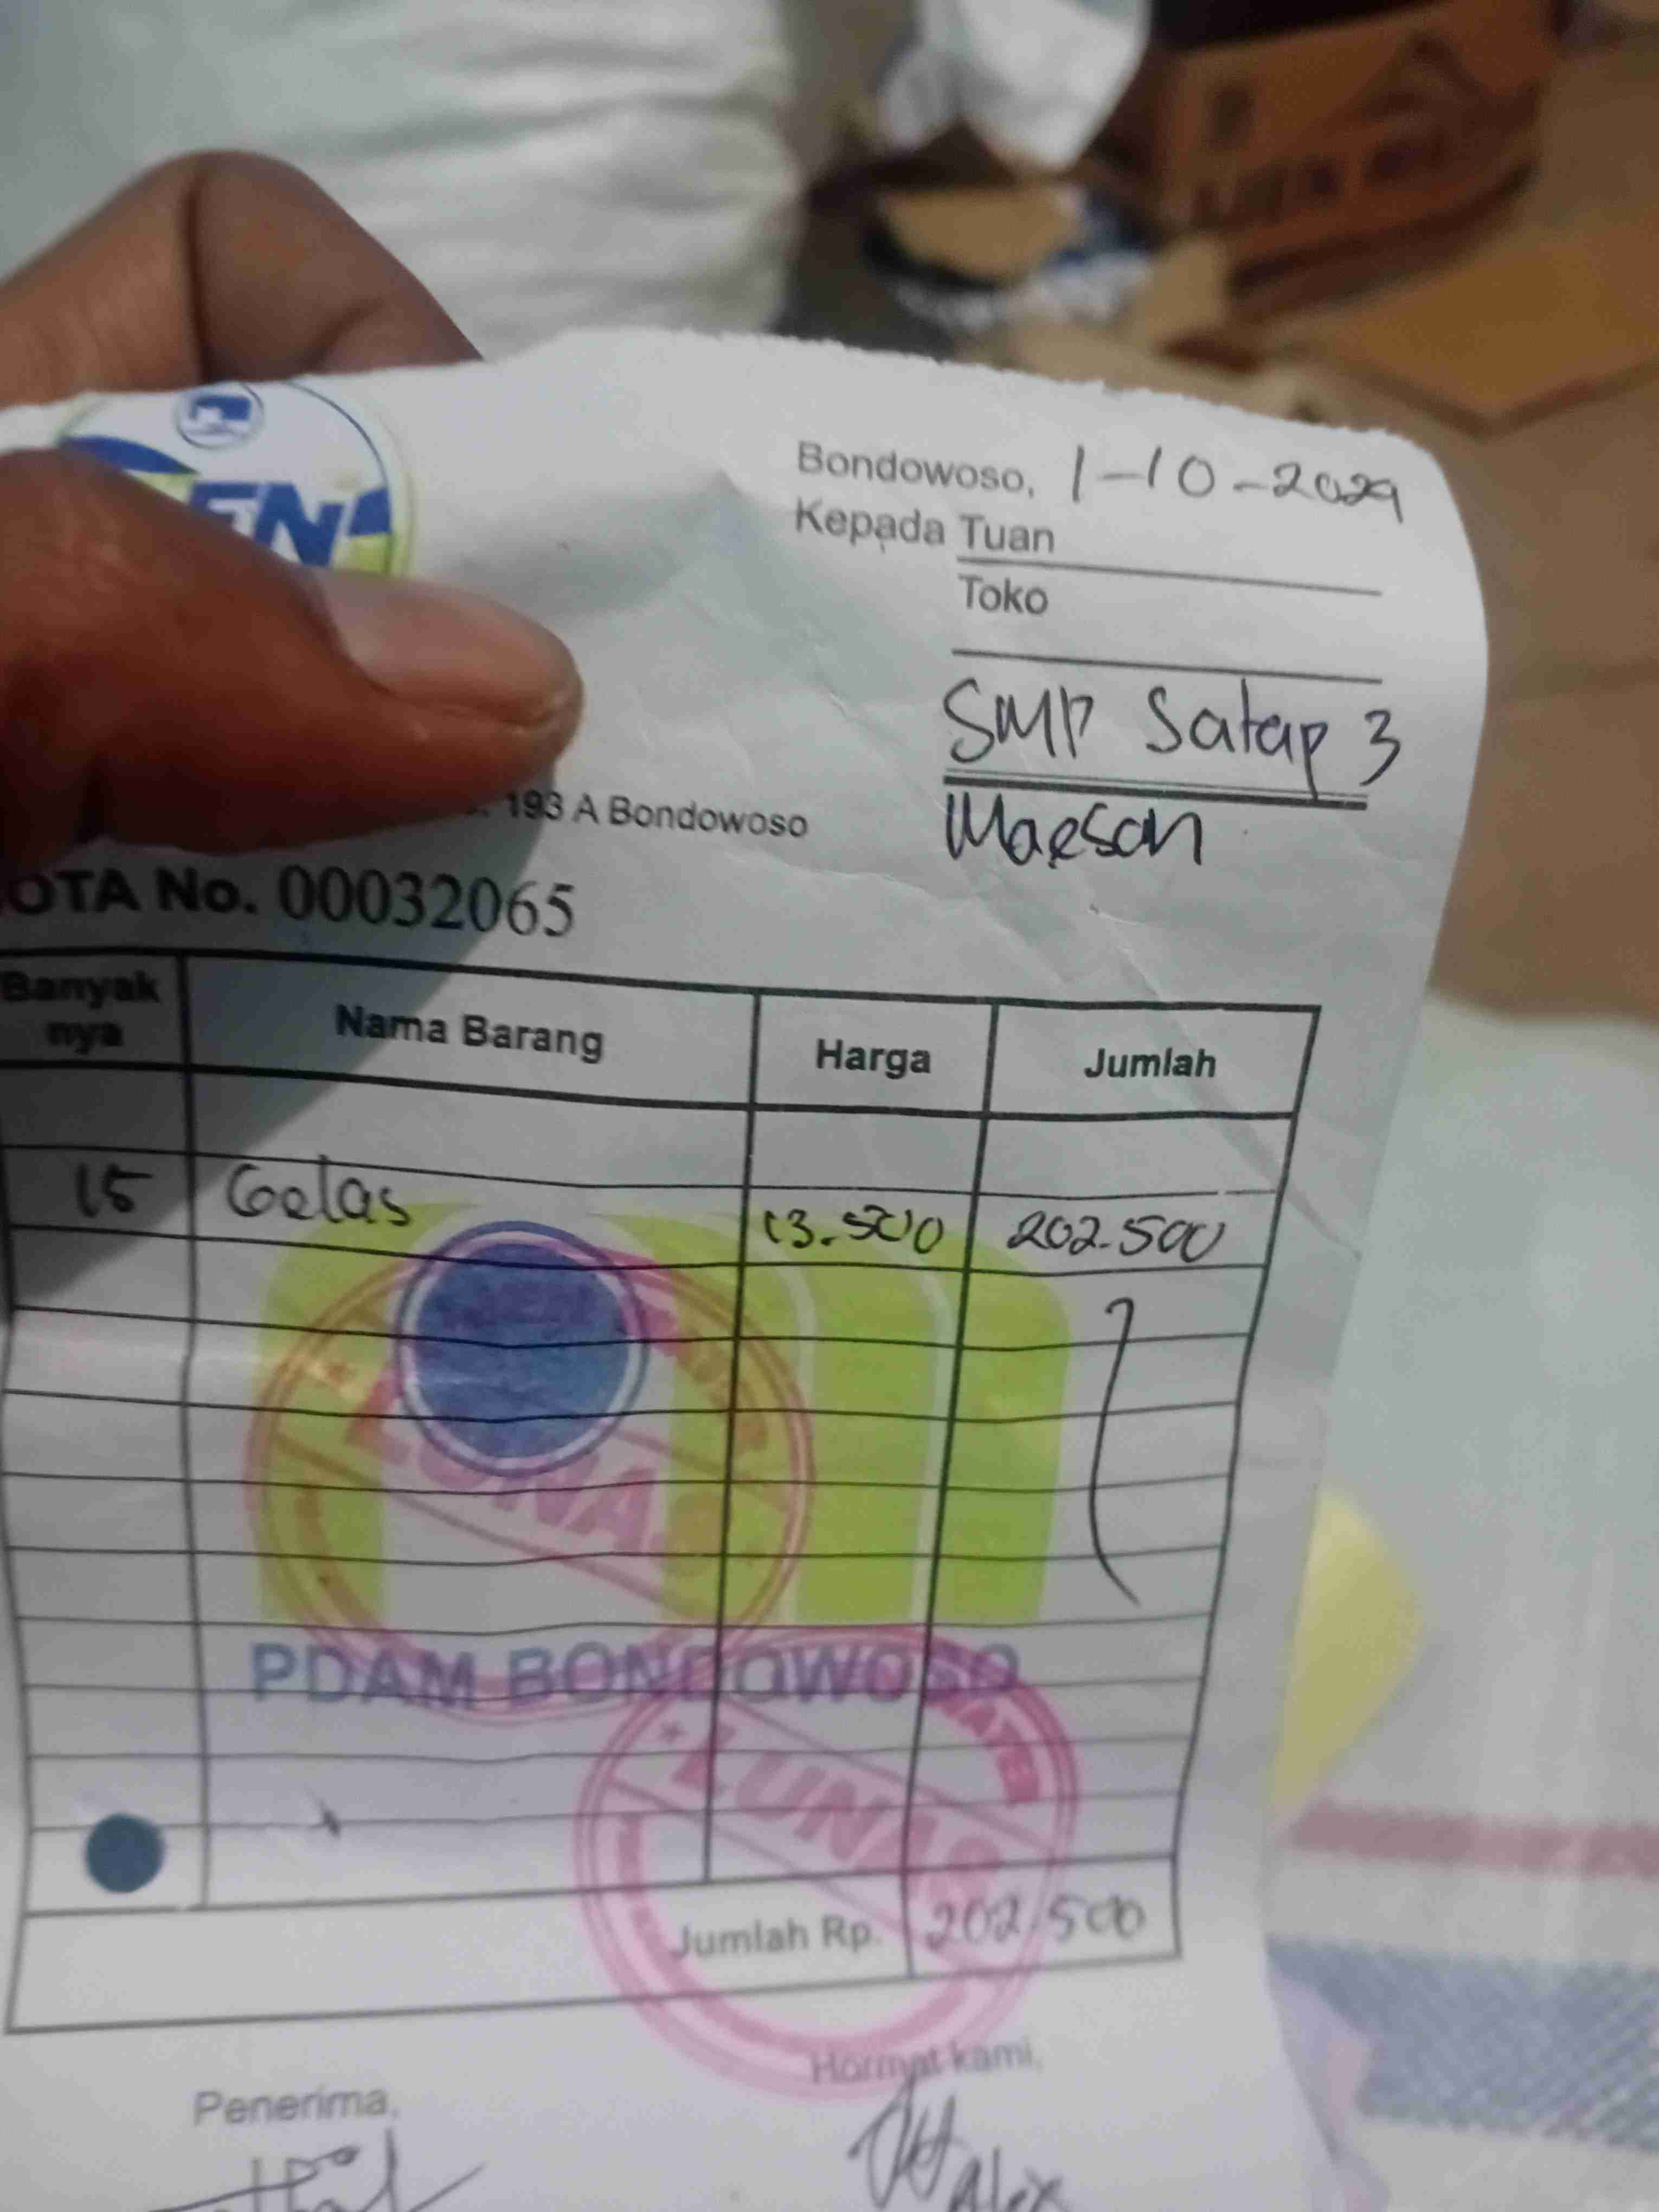 EN
Bondowoso, 1-10-2024
Kepada Tuan
Toko
SMP Satap 3
Maesan
193 A Bondowoso
OTA No. 00032065
Banyak nya Nama Barang Harga Jumlah
15 Gelas 13.500 202.500
LUNAS
PDAM BONDOWOSO
LUNAS
Jumlah Rp. 202.500
Penerima, Hormat kami,
Alex